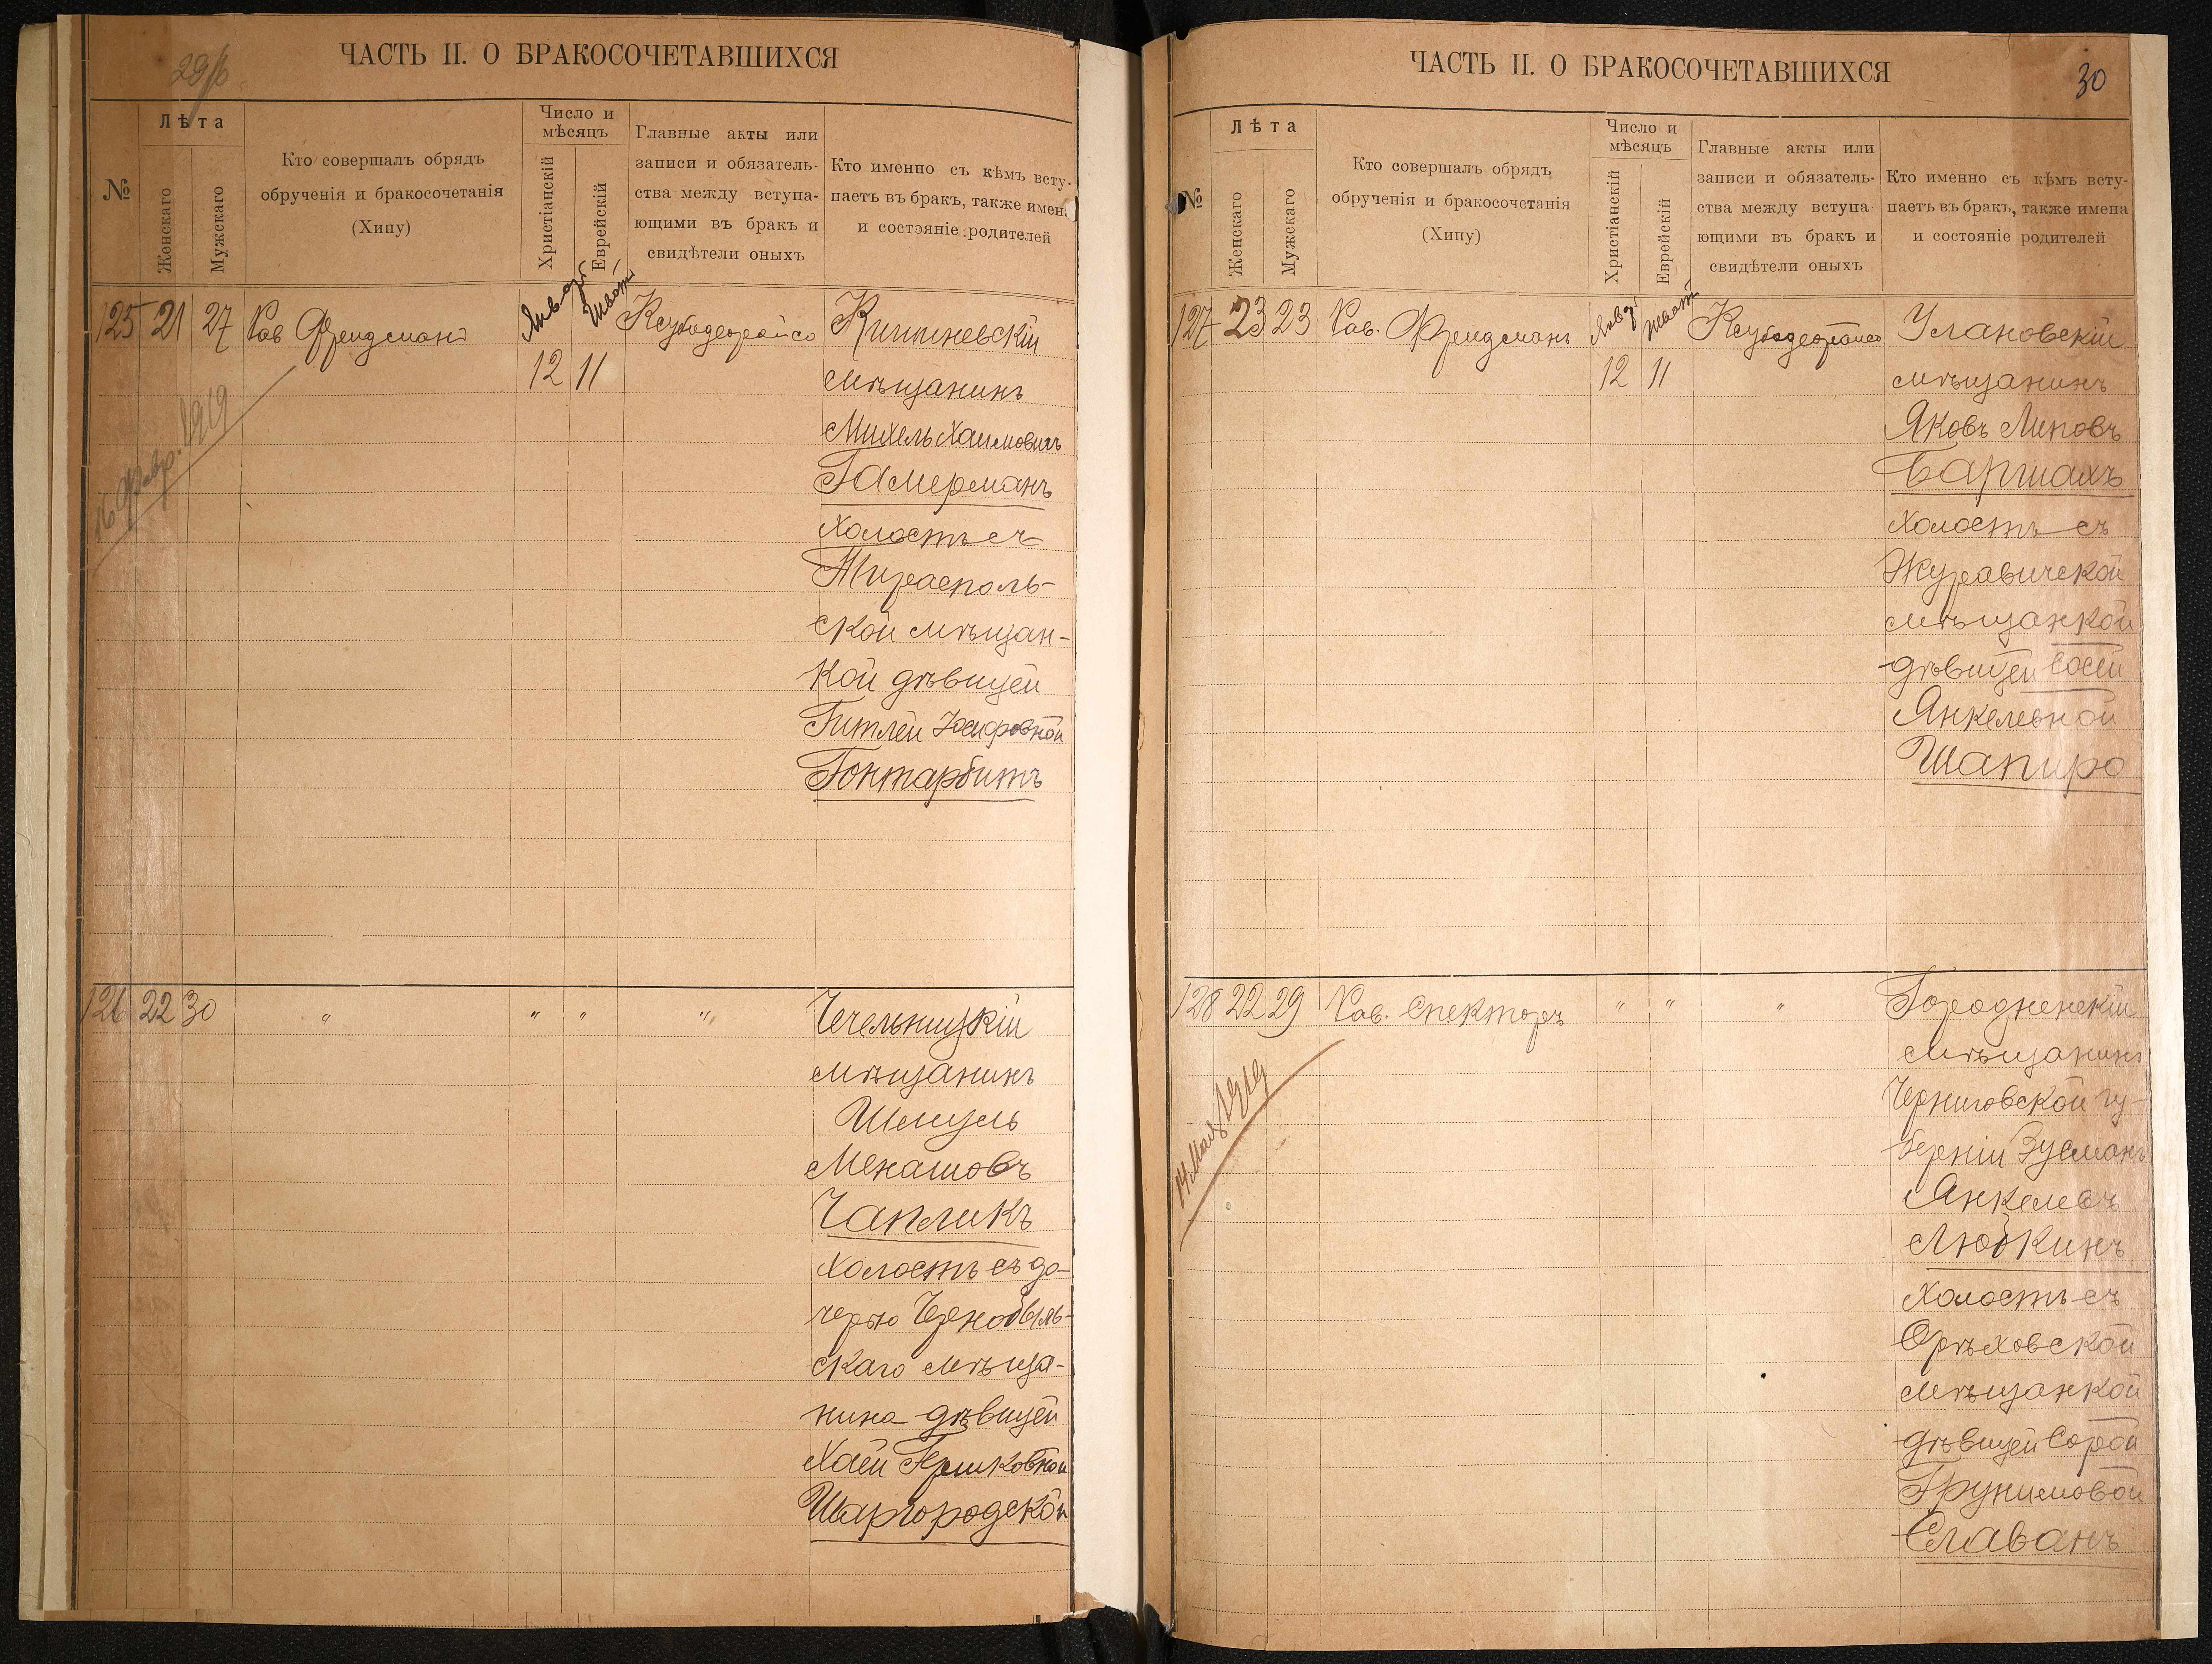 29/б
ЧАСТЬ II. О БРАКОСОЧЕТАВШИХСЯ
№
Лѣта
Женскаго
Мужскаго
Кто совершалъ обрядъ
обрученія и бракосочетанія
(Хипу)
Число и
мѣсяцъ
Христіанскій
Еврейскій
Главные акты или
записи и обязатель-
ства между вступа-
ющими въ бракъ и
свидѣтели оныхъ
Кто именно съ кѣмъ всту-
паетъ въ бракъ, также имена
и состояніе родителей
125 21 27 Рав Фридманъ Январь Шватъ Ксубодеорайсо Кишиневскій
12 11 мѣщанинъ
Михель Хаимовичъ
Гамерманъ
холостъ съ
Тирасполь-
ской мѣщан-
кой дѣвицей
Гитлей Іосифовной
Гонтарбитъ
16 Февр. 1919
126 22 30 " " " " Чечельницкій
мѣщанинъ
Шмуль
Менашовъ
Чапликъ
холостъ съ до-
черью Чернобыль-
скаго мѣща-
нина дѣвицей
Хаей Гершковной
Шаргородской
ЧАСТЬ II. О БРАКОСОЧЕТАВШИХСЯ
30
№
Лѣта
Женскаго
Мужскаго
Кто совершалъ обрядъ
обрученія и бракосочетанія
(Хипу)
Число и
мѣсяцъ
Христіанскій
Еврейскій
Главные акты или
записи и обязатель-
ства между вступа-
ющими въ бракъ и
свидѣтели оныхъ
Кто именно съ кѣмъ всту-
паетъ въ бракъ, также имена
и состояніе родителей
127 23 23 Рав. Фридманъ Янв. Шватъ Ксубодеорайсо Улановскій
12 11 мѣщанинъ
Яковъ Липовъ
Баршахъ
холостъ съ
Журавичской
мѣщанкой
дѣвицей Сосей
Янкелевной
Шапиро
128 22 29 Рав. Спекторъ " " " Городненскій
мѣщанинъ
Черниговской гу-
берніи Зусманъ
Янкелевъ
Любкинъ
холостъ съ
Орѣховской
мѣщанкой
дѣвицей Сорой
Грунимовой
Славанъ
14 Мая 1919